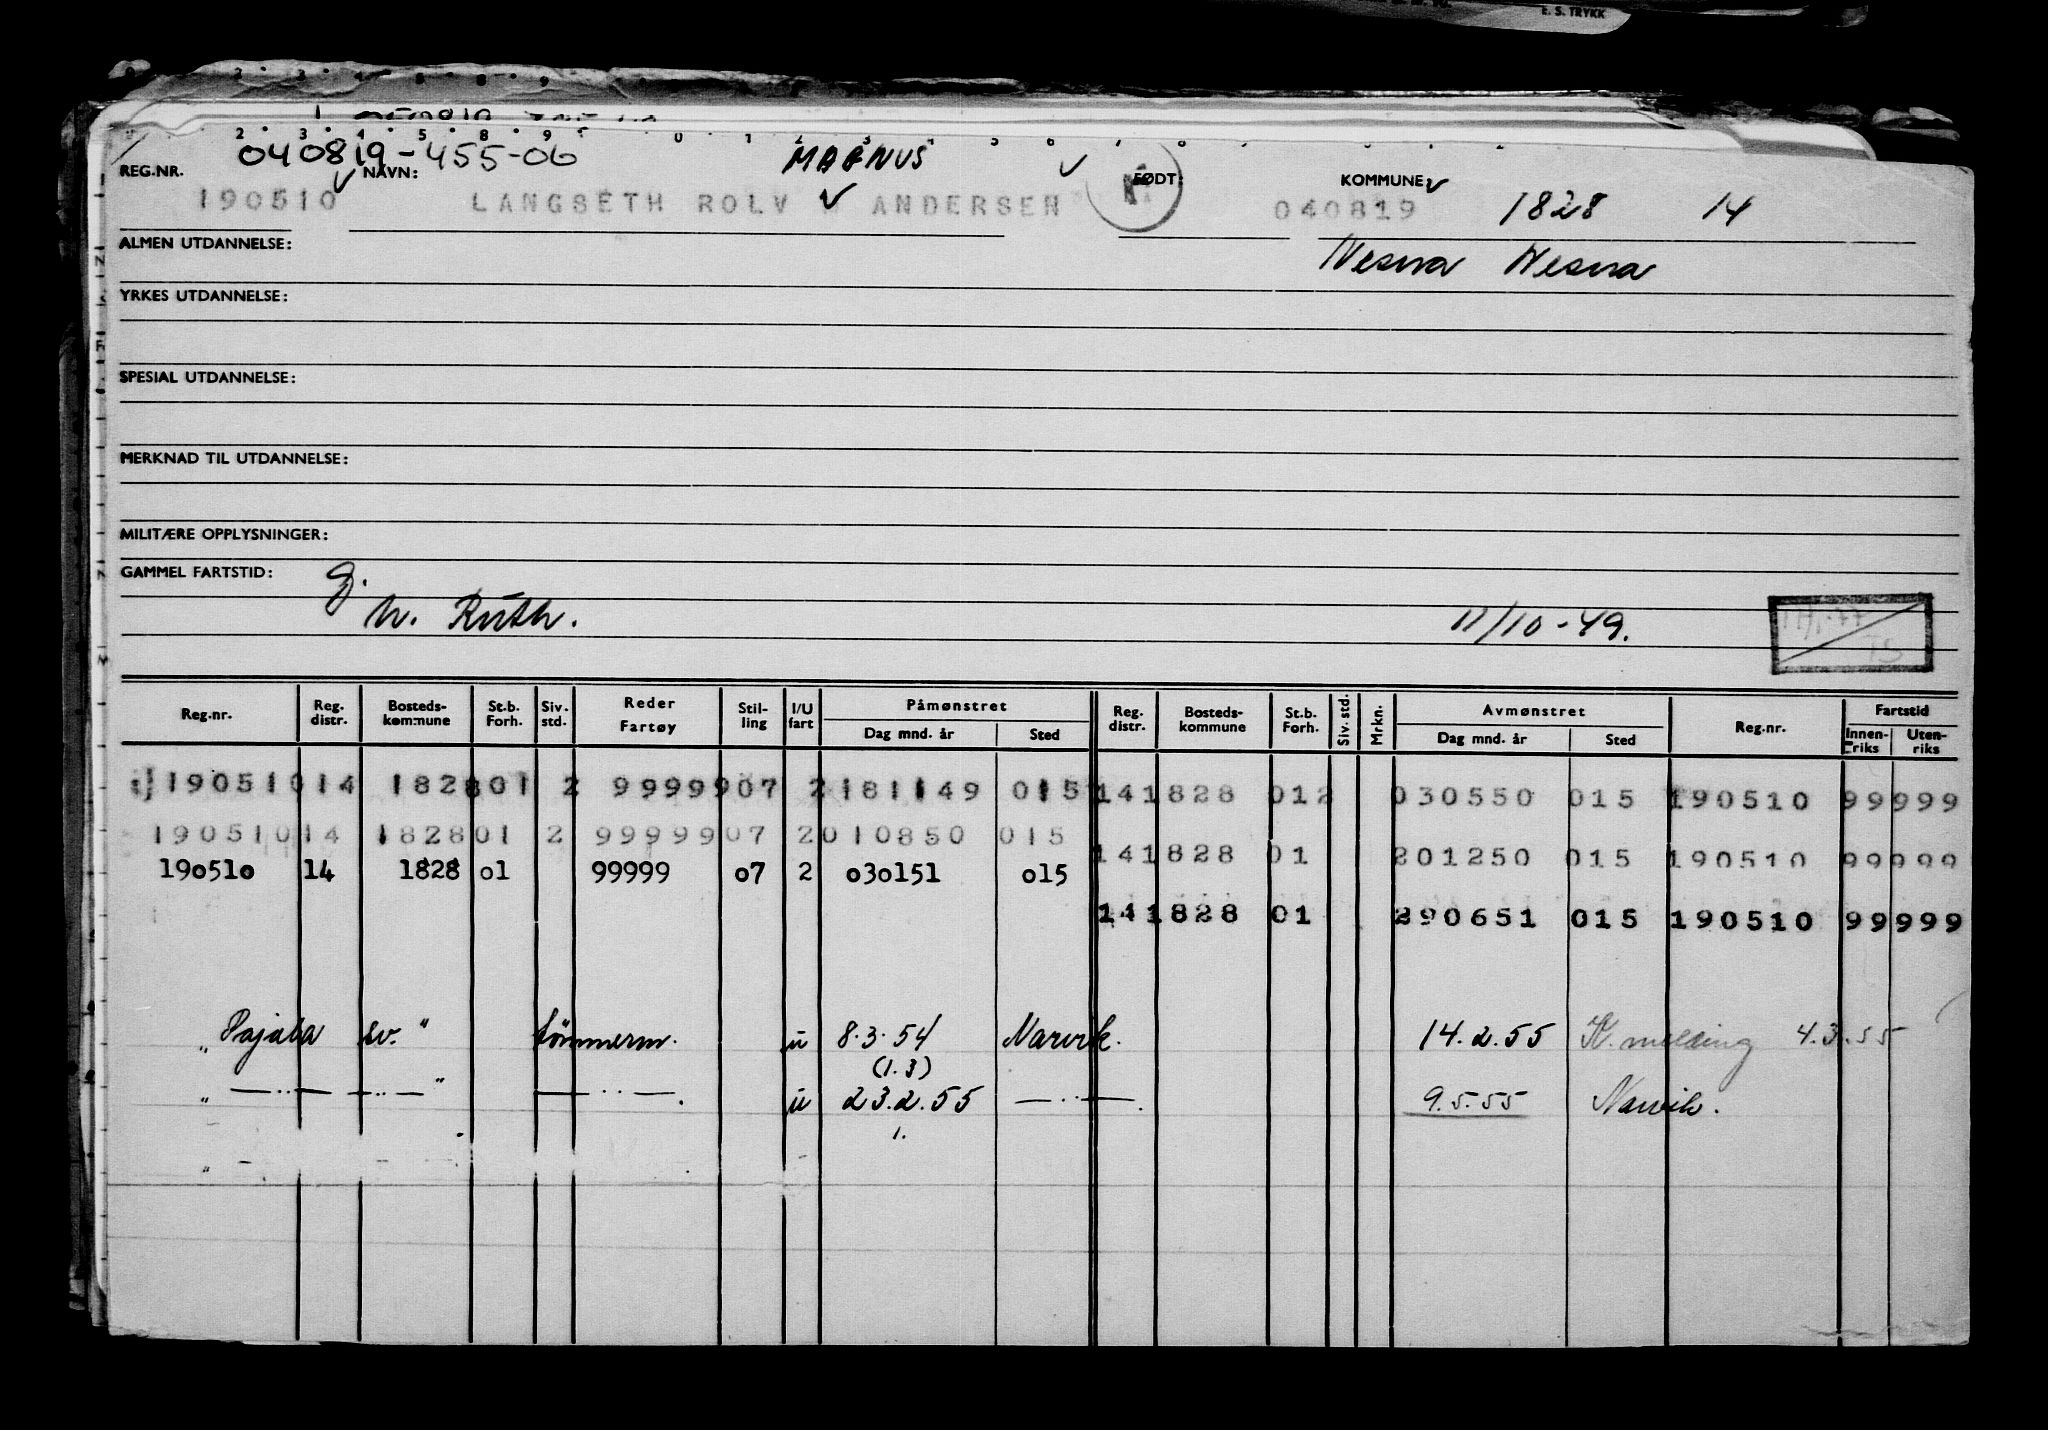 E. S. TRYKK
040819-455-06 MAGNUS
REG.NR. NAVN: FØDT: KOMMUNE
190510 LANGSETH ROLV M ANDERSEN 040819 1828 14
ALMEN UTDANNELSE: Nesna Nesna
YRKES UTDANNELSE:
SPESIAL UTDANNELSE:
MERKNAD TIL UTDANNELSE:
MILITÆRE OPPLYSNINGER:
GAMMEL FARTSTID:
W. Ruth. 11/10-49.
Reg.nr. Reg. distr. Bosteds-kommune St.b. Forh. Siv. std. Reder Fartøy Stil-ling I/U fart Påmønstret Dag mnd. år Sted Reg. distr. Bosteds-kommune St.b. Forh. Siv. std. Mrkn. Avmønstret Dag mnd. år Sted Reg.nr. Fartstid Innen-riks Uten-riks
190510 14 1828 01 2 99999 07 2 181149 015 14 1828 01 2 030550 015 190510 99 999
190510 14 1828 01 2 99999 07 2 010850 015
14 1828 01 201250 015 190510 99 999
190510 14 1828 01 99999 07 2 030151 015
14 1828 01 290651 015 190510 99 999
" Pajala sv. " tömmerm. u 8.3.54 Narvik. 14.2.55 K. melding 4.3.55
(1.3)
" —··— —··— " —··—. u 23.2.55 —··—. 9.5.55 Narvik.
1.